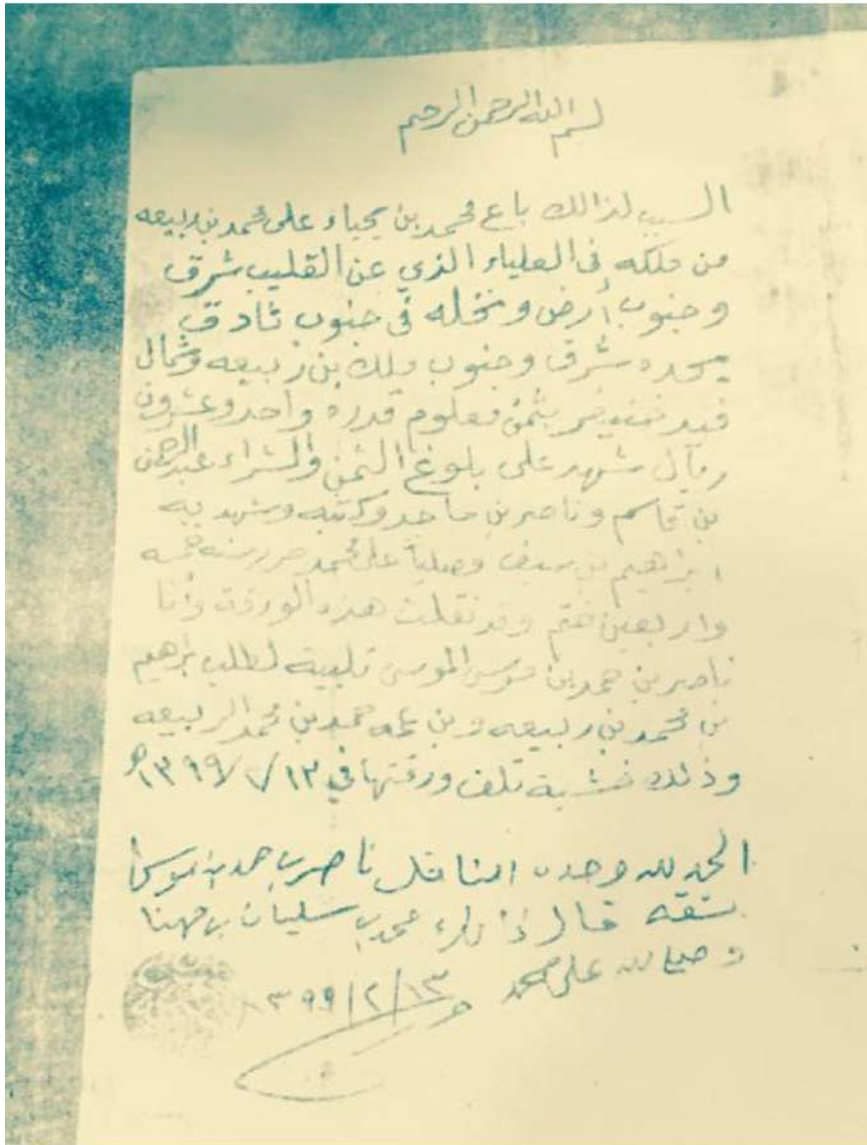 بسم الله الرحمن الرحيم
السبب لذالك باع محمد بن يحياء على محمد بن ربيعه
من ملكه في العلياء الذي عن القليب شرق
وجنوب أرض ونخله في جنوب ثادق
يحده شرق وجنوب ملك بن ربيعه وشمال
فيد بثمن معلوم قدره واحد وعشرون
ريال شهد على بلوغ الثمن والشراء عبدالرحمن
بن قاسم وناصر بن ماجد وكتبه وشهد به
ابراهيم بن سيف وصلى الله على محمد حرر سنه خمسه
واربعين ختم وقد نقلت هذه الورقة وأنا
ناصر بن حمد بن موسى الموسى تلبية لطلب براهيم
بن محمد بن ربيعه وبن عمه حمد بن محمد الربيعه
وذلك خشية تلف ورقتها في ١٣/٢/١٣٩٩هـ
الحمد لله وحده الناقل ناصر بن حمد بن موسى
ثقه قال ذلك محمد بن سليمان بن مهنا
وصلى الله على محمد ١٣/٢/١٣٩٩